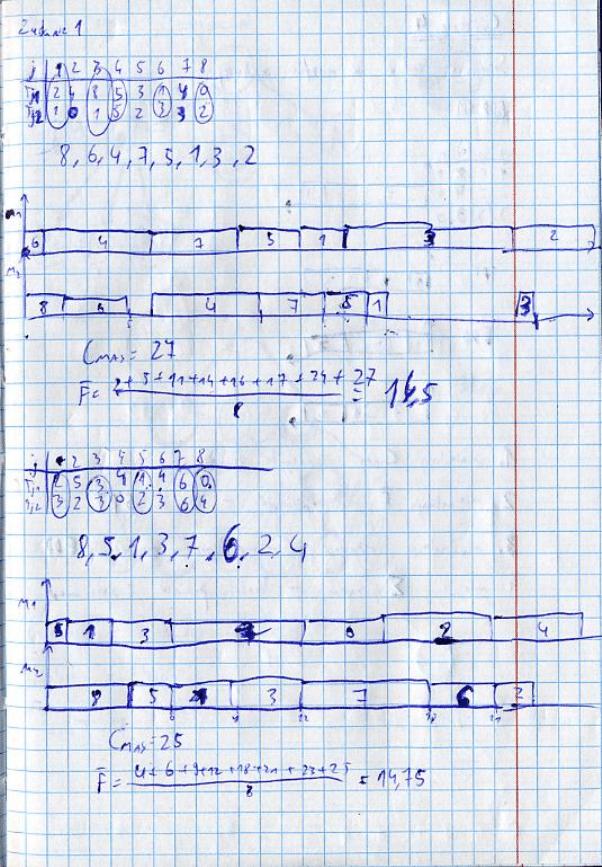 j 1 2 3 4 5 6 7 8
Tj1 2 4 8 5 3 1 4 0
Tj2 1 0 1 5 2 3 3 2
8, 6, 4, 7, 5, 1, 3, 2
M1
6 4 7 5 1 3 2
M2
8 6 4 7 5 1 3
Cmax = 27
F̄ = 2+5+11+14+16+17+24+27
8
= 14,5
j 1 2 3 4 5 6 7 8
Tj1 2 5 3 4 1 4 6 0
Tj2 3 2 3 0 2 3 6 4
8, 5, 1, 3, 7, 6, 2, 4
M1
5 1 3 7 2 4
M2
8 5 1 3 7 6 2
Cmax = 25
F̄ = 4+6+9+12+18+21+23+25
8
= 14,75